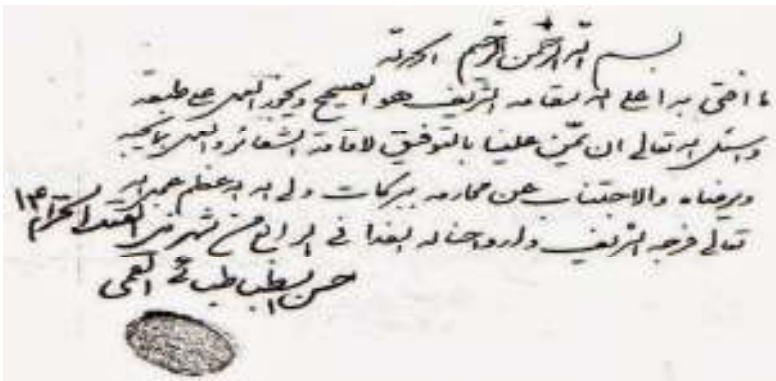 بسم الله الرحمن الرحيم
ما افتى به اعلى الله مقامه الشريف هو الصحيح ويجوز العمل على طبقه
واسئل الله تعالى ان يمن علينا بالتوفيق لاقامة الشعائر والعمل بما يحبه
ويرضاه والاجتناب عن محارمه ببركات ولي الله الاعظم عجل الله
تعالى فرجه الشريف وارواحنا له الفدا في الرابع من شهر ذي القعدة الحرام
حسن الطباطبائي القمي